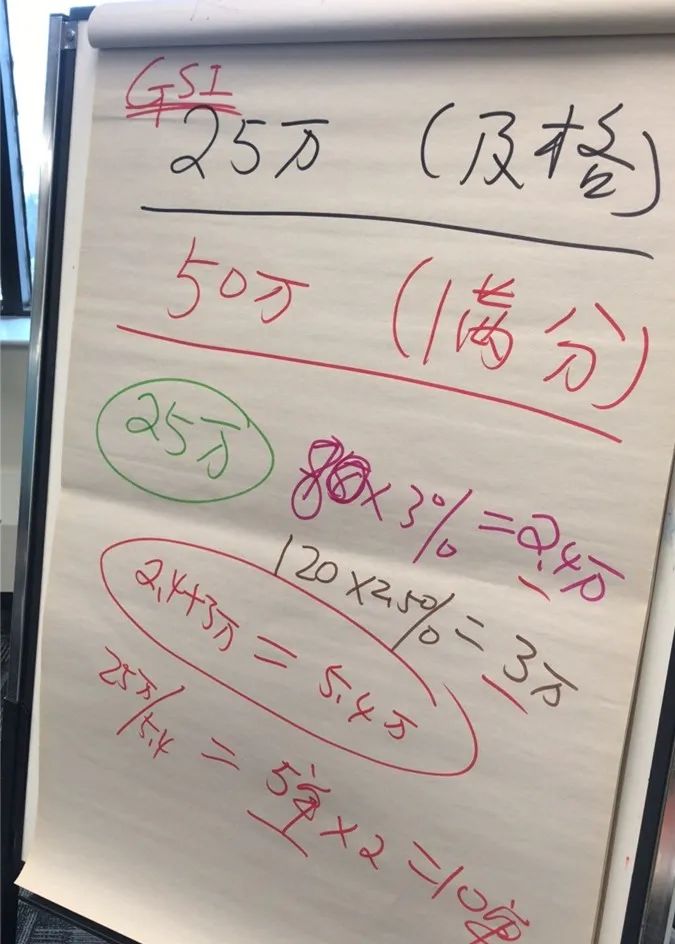 GSI
25万 (及格)
50万 (满分)
25万
80×3%=2.4万
120×2.5%=3万
2.4+3万=5.4万
25万/5.4=5套×2=10套